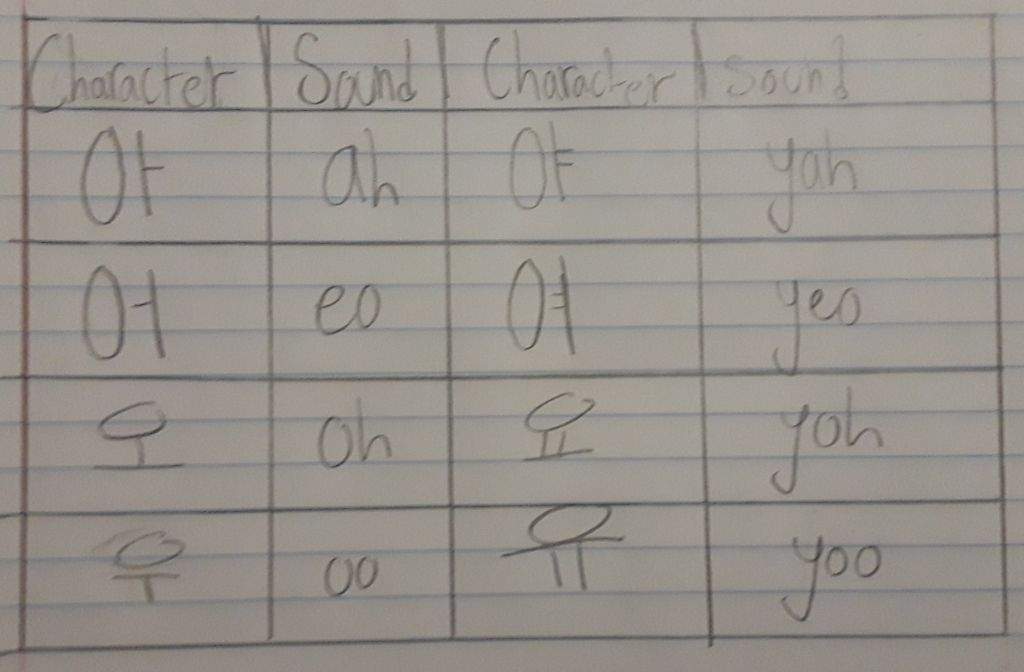 Character Sound Character Sound
아 ah야 yah
어 eo 여 yeo
오 oh 요 yoh
우 oo 유 yoo